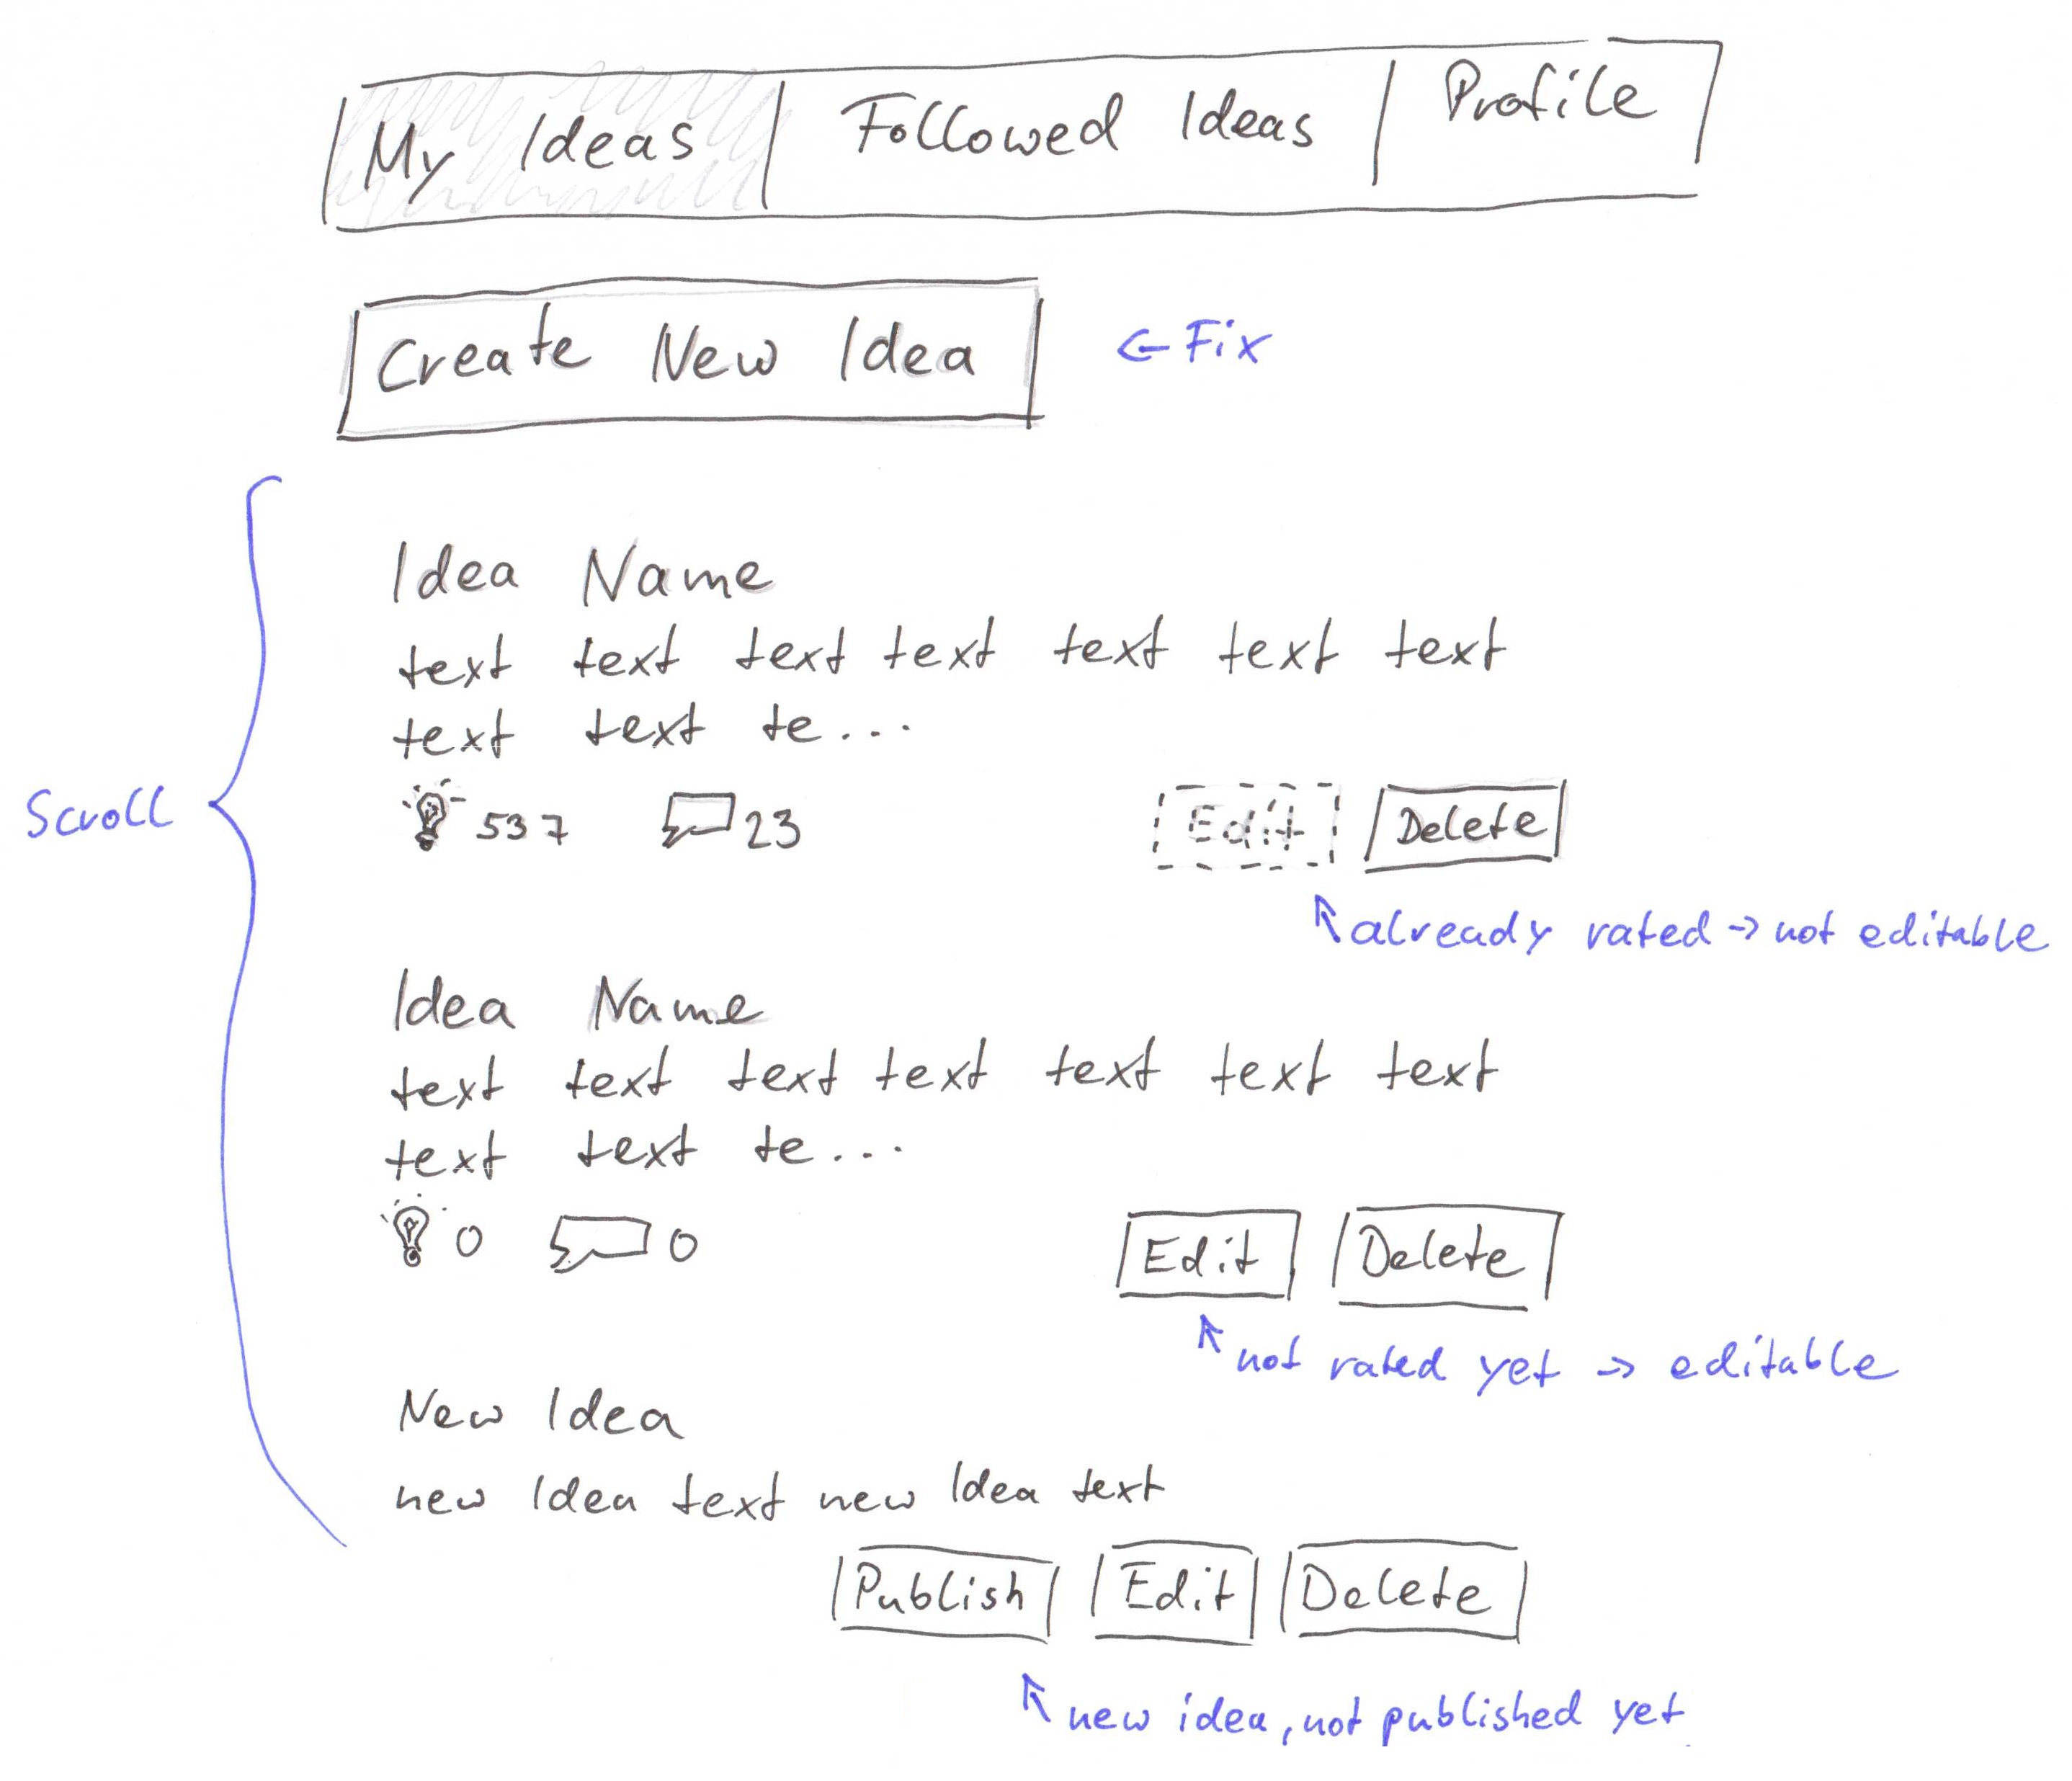 My Ideas Followed Ideas Profile
Create New Idea ← Fix
Idea Name
text text text text text text text
text text te...
Scroll
537 23 Edit Delete
↖ already rated → not editable
Idea Name
text text text text text text text
text text te...
0 0 Edit Delete
↖ not rated yet → editable
New Idea
new Idea text new Idea text
Publish Edit Delete
↖ new idea, not published yet